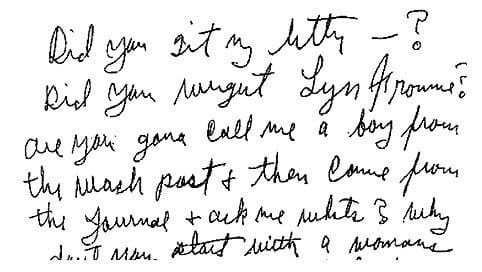 Did you git my letty — ?
Did you rergut Lyn Fromme?
are you gona call me a boy from
the wash post & then come from
the Journal & ask me whats & why
don't you start with a womans